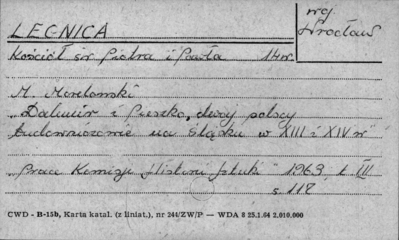 LEGNICA
woj. Wrocław
Kościół św Piotra i Pawła 14 w.
M. Morelowski
„Dalmir i Pieszko, dwaj polscy
budowniczowie na Śląsku w XIII i XIV w"
„Prace Komisji Historii Sztuki" 1963, t. III
s. 118
CWD - B-15b, Karta katal. (z liniat.), nr 244/ZW/P — WDA 8 25.1.64 2.010.000